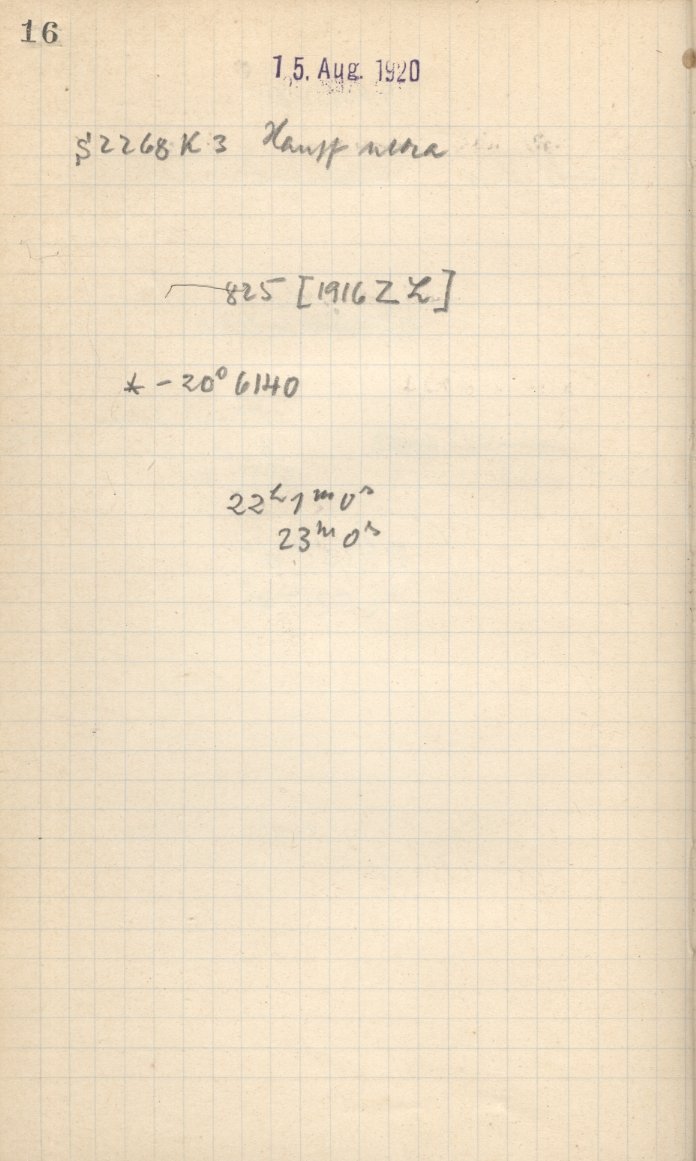 16
15. Aug. 1920
S 2268 K 3 Hauff ultra
825 [1916 Z L]
* - 20° 6140
22ʰ 1ᵐ 0ˢ
23ᵐ 0ˢ